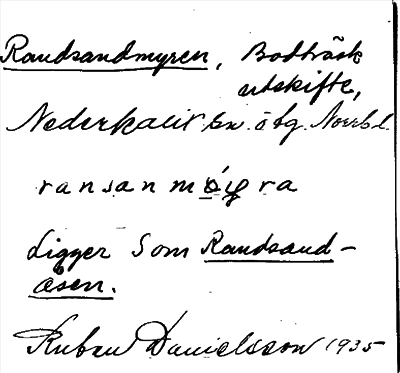 Randsandmyren, Bodträsk
utskifte,
Nederkalix sn. ö tg. Norrb.l.
ransanmø̀i̯ra
Ligger som Randsand-
åsen.
Ruben Danielsson 1935